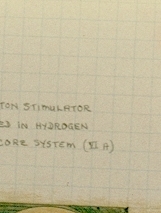 TON STIMULATOR
ED IN HYDROGEN
CORE SYSTEM (VI A)